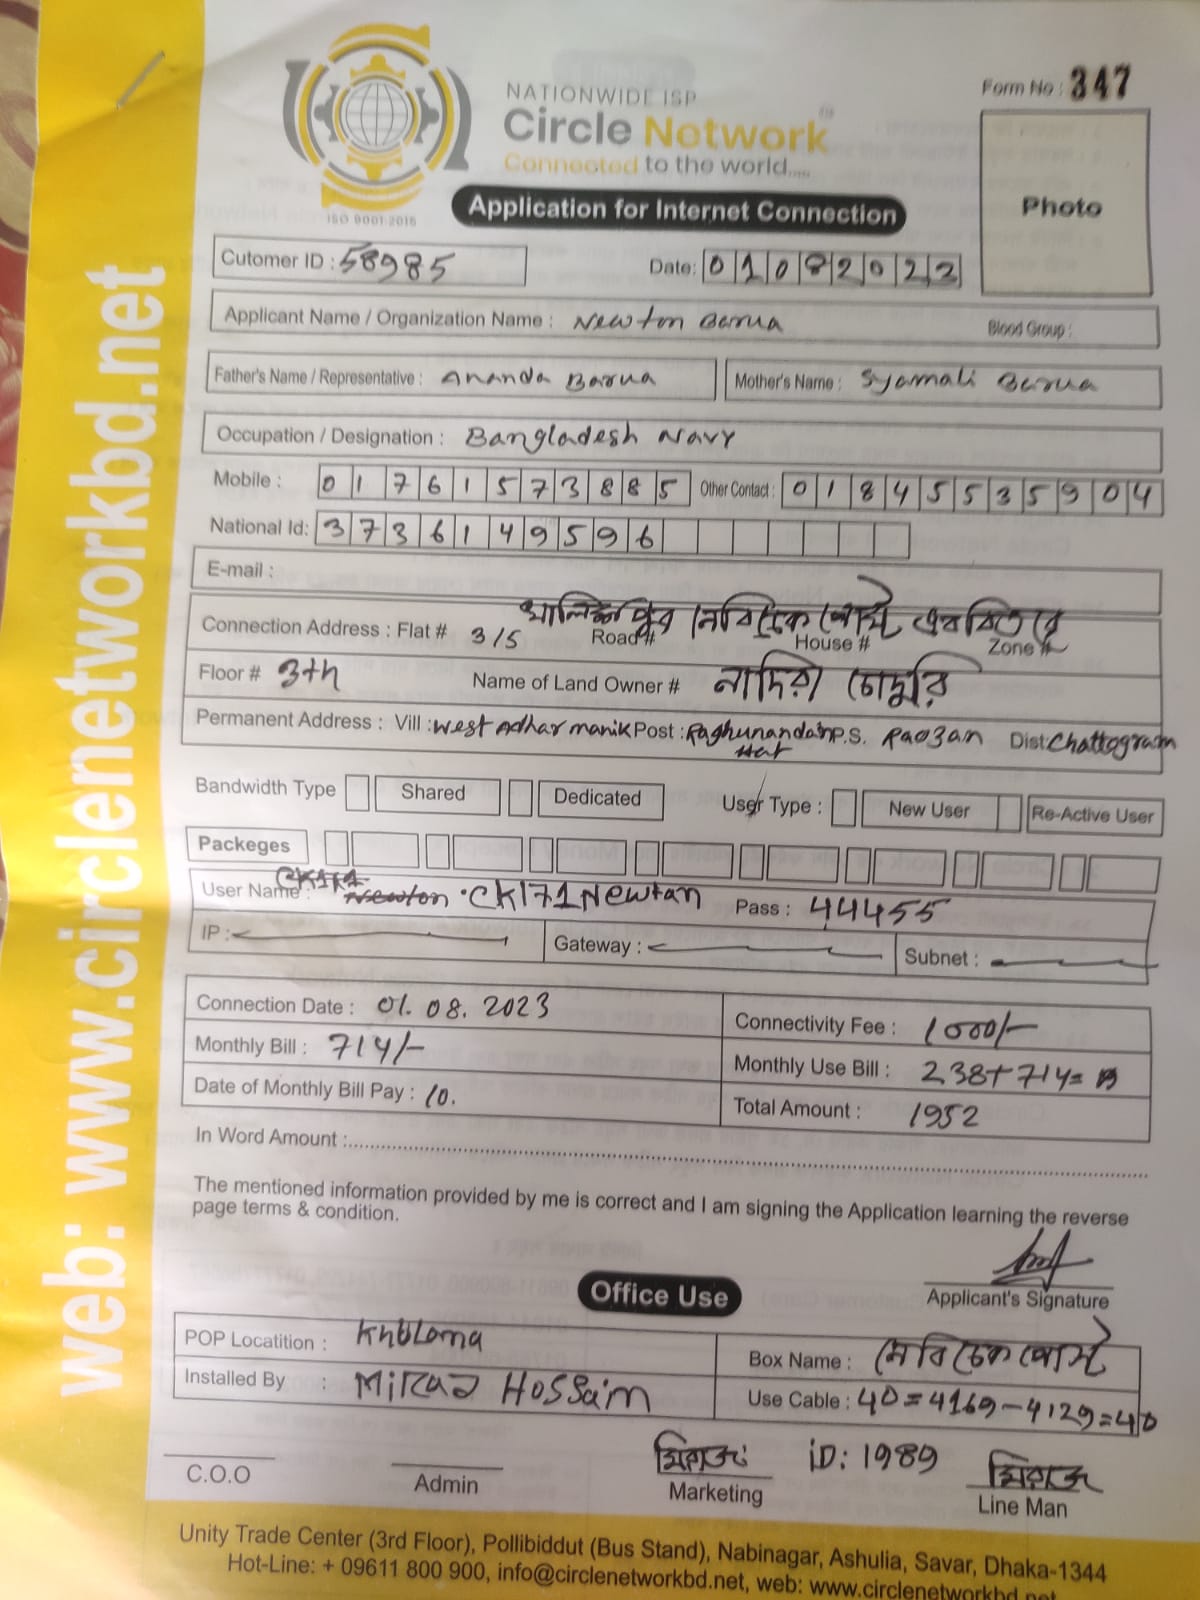 Form No : 347
NATIONWIDE ISP
Circle Network
Connected to the world.....
ISO 9001:2015
Application for Internet Connection
Photo
Cutomer ID : 58985 Date: 01082023
Applicant Name / Organization Name : Newton Barua Blood Group :
Father's Name / Representative : Ananda Barua Mother's Name : Syamali Barua
Occupation / Designation : Bangladesh Navy
Mobile : 01761573885 Other Contact : 01845535904
National Id: 3736149596
E-mail :
Connection Address : Flat # 3/5 Road # House # Zone #
Floor # 3th Name of Land Owner # নাদিরা চৌধুরি
Permanent Address : Vill : West Adhar manik Post : Raghunandan Hat P.S. Raozan Dist: Chattogram
Bandwidth Type Shared Dedicated User Type : New User Re-Active User
Packeges
User Name : Newton CK171Newtan Pass : 44455
IP : Gateway : Subnet :
Connection Date : 01. 08. 2023 Connectivity Fee : 1000/-
Monthly Bill : 714/- Monthly Use Bill : 238+714=
Date of Monthly Bill Pay : 10. Total Amount : 1952
In Word Amount :
The mentioned information provided by me is correct and I am signing the Application learning the reverse
page terms & condition.
Applicant's Signature
Office Use
POP Locatition : Khulama Box Name :
Installed By : Miraz Hossain Use Cable : 40=4169-4129=40
মিরাজ iD: 1989 মিরাজ
C.O.O Admin Marketing Line Man
Unity Trade Center (3rd Floor), Pollibiddut (Bus Stand), Nabinagar, Ashulia, Savar, Dhaka-1344
Hot-Line: + 09611 800 900, info@circlenetworkbd.net, web: www.circlenetworkbd.net
web: www.circlenetworkbd.net